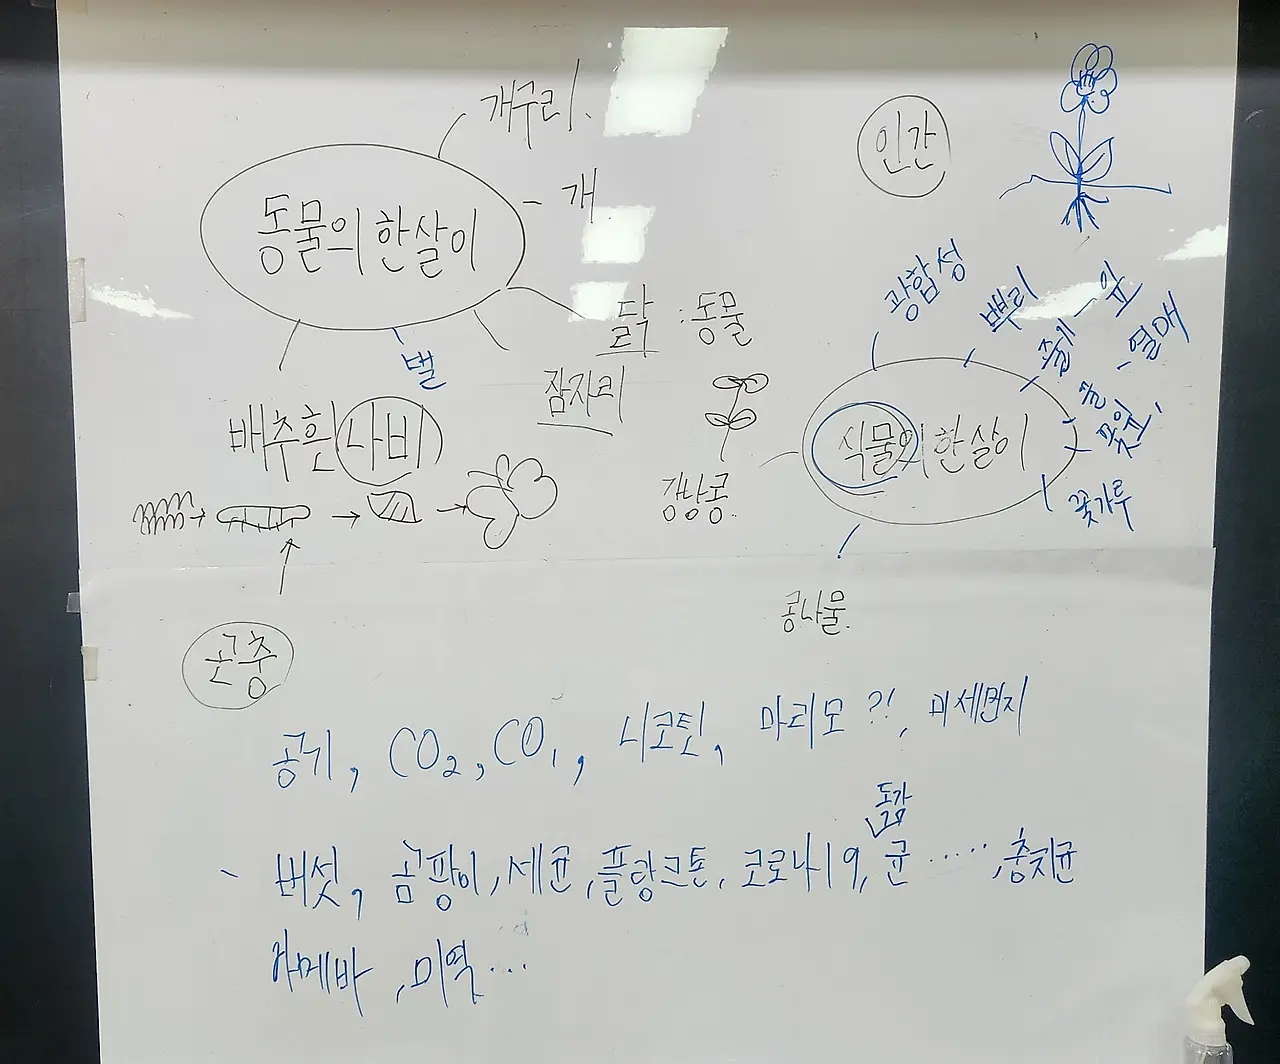 개구리
인간
- 개
동물의 한살이
광합성
뿌리
줄기 - 잎
- 열매
닭 : 동물
벌
잠자리
배추흰나비
식물의 한살이
강낭콩
꽃가루
콩나물
곤충
공기, CO₂, CO₁, 니코틴, 마리모?!, 미세먼지
독감
버섯, 곰팡이, 세균, 플랑크톤, 코로나19, 균 ....., 충치균
아메바, 미역...